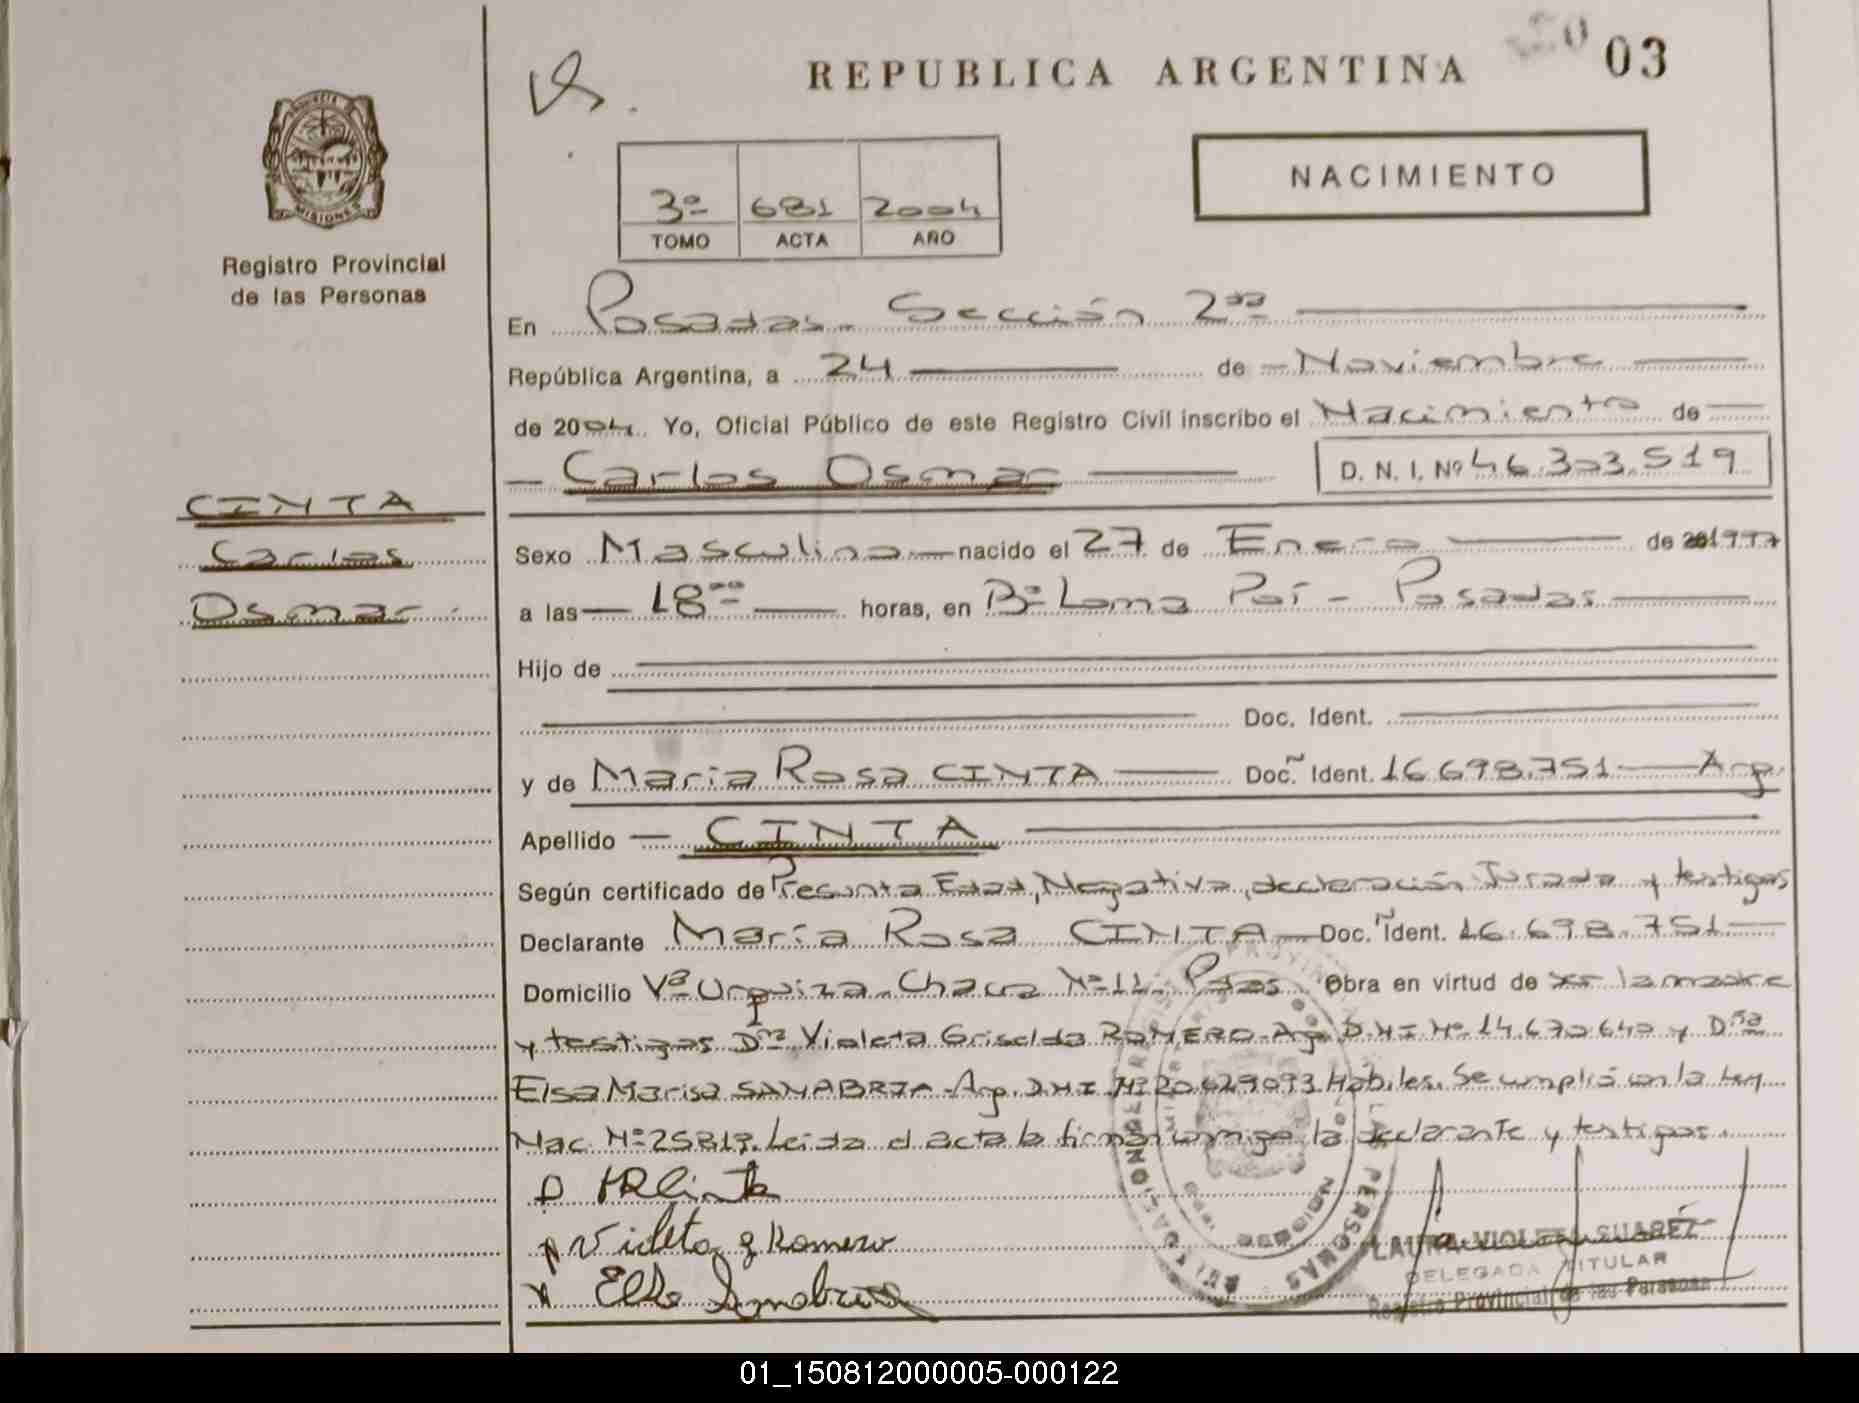 03
REPUBLICA ARGENTINA
NACIMIENTO
3º 681 2004
TOMO ACTA AÑO
PROVINCIA DE
MISIONES
Registro Provincial
de las Personas
En Posadas - Sección 2da
República Argentina, a 24 de Noviembre
de 2004. Yo, Oficial Público de este Registro Civil inscribo el Nacimiento de
Carlos Osmar D. N. I. Nº 46.303.519
CINTA
Carlos
Osmar
Sexo Masculino nacido el 27 de Enero de 1997
a las 18 00 horas, en Bº Loma Poí - Posadas
Hijo de
Doc. Ident.
y de María Rosa CINTA Doc. Ident. 16.698.751 Arg.
Apellido CINTA
Según certificado de Presunta Edad, Negativa, declaración Jurada y testigos
Declarante María Rosa CINTA Doc. Ident. 16.698.751
Domicilio Vª Urquiza - Chacra Nº 11 - Pdas Obra en virtud de ser la madre
y testigos Dña Violeta Griselda ROMERO - Arg. D.N.I Nº 14.670.640 y Dña
Elsa Marisa SANABRIA - Arg. D.N.I. Nº 20.629.093 Hábiles. Se cumplió con la Ley
Nac. Nº 25819. Leida el acta la firman conmigo la declarante y testigos.
MRCinta
Violeta g Romero
Elsa Sanabria
LAURA VIOLETA SUAREZ
DELEGADA TITULAR
Registro Provincial de las Personas
01_150812000005-000122